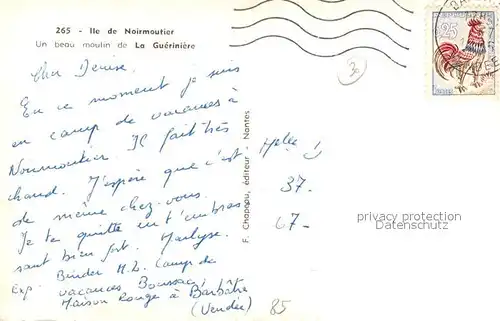 265 - Ile de Noirmoutier
Un beau moulin de La Guérinière
30
25
Cher Denise.
En ce moment je suis
en camp de vacances à
Noirmoutier Il fait très
chaud. J'espère que c'est
de même chez vous.
Je te quitte en t'embras
sant bien fort. Marlyse.
Exp. Binder M.L. Camp de
vacances Boussac
Maison Rouge à Barbâtre
(Vendée)
85
F. Chapeau, éditeur - Nantes
Melle
37-
67-
privacy protection
Datenschutz